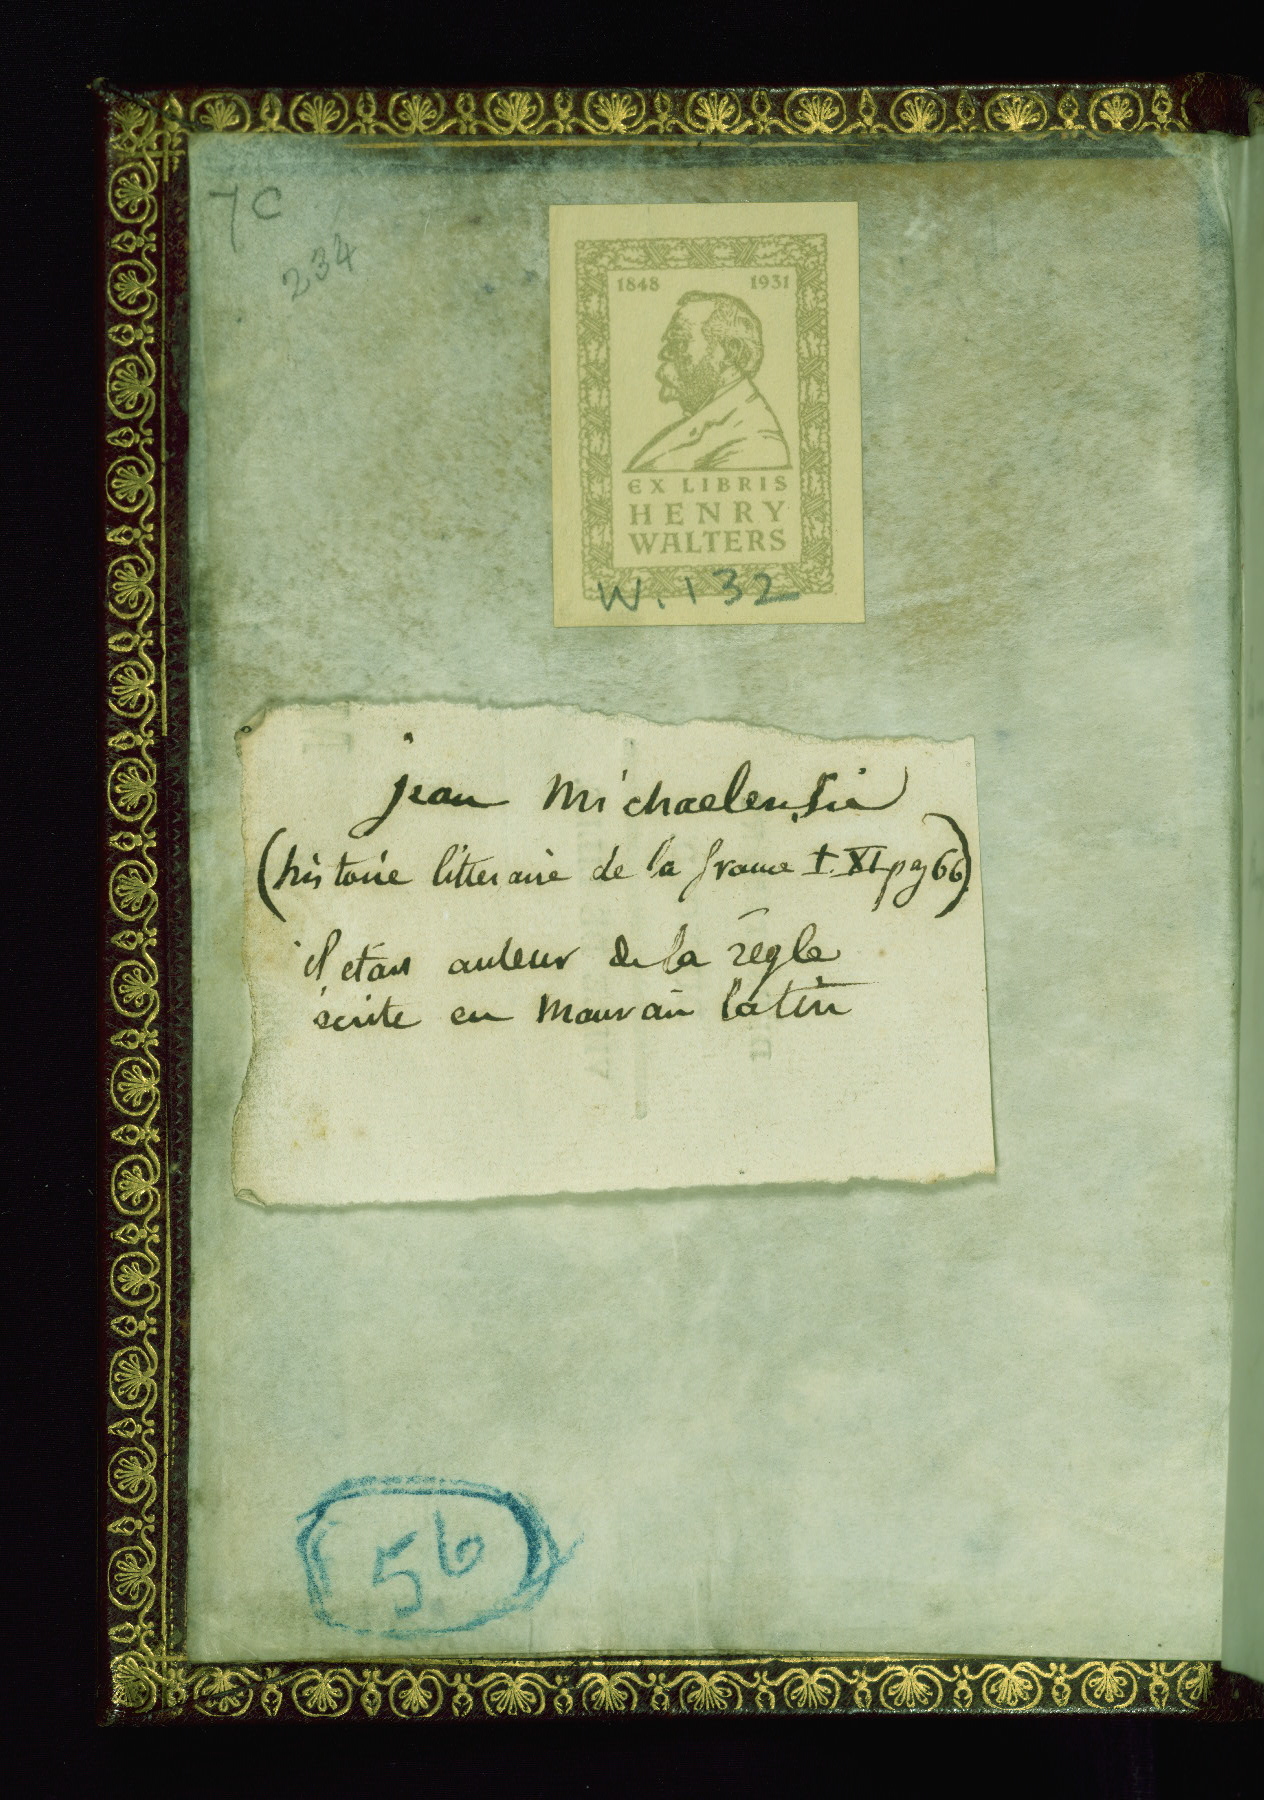 7C
234
1848 1931
EX LIBRIS
HENRY
WALTERS
W. 132
jean Michaelensis
(histoire litteraire de la france t. XI pag 66)
il etais auteur de la règle
écrite en mauvais latin
56